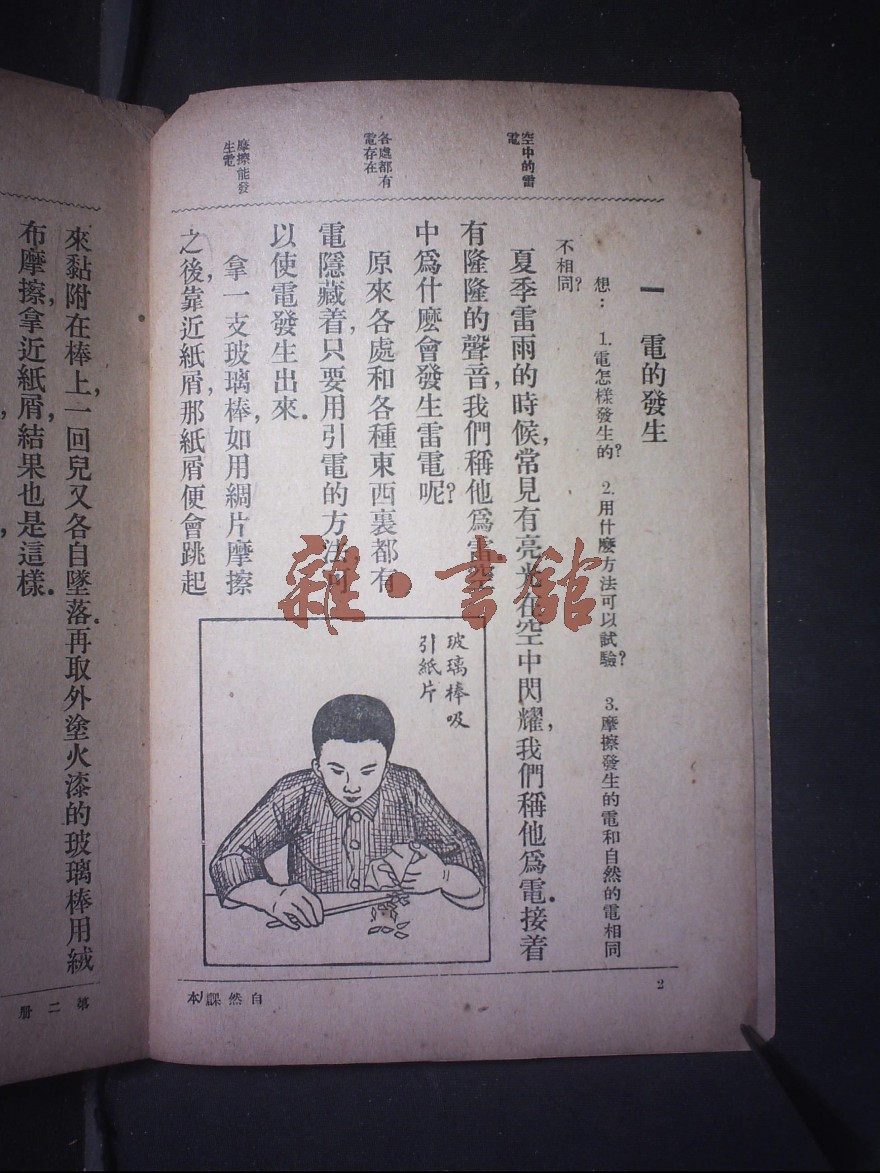 空中的雷
電
各處都有
電存在
摩擦能發
生電
一　電的發生
想：　1. 電怎樣發生的？　2. 用什麼方法可以試驗？　3. 摩擦發生的電和自然的電相同
不相同？
夏季雷雨的時候，常見有亮光在空中閃耀，我們稱他爲電．接着
有隆隆的聲音，我們稱他爲雷．空
中爲什麼會發生雷電呢？
原來各處和各種東西裏都有
電隱藏着，只要用引電的方法，可
以使電發生出來．
拿一支玻璃棒，如用綢片摩擦
之後，靠近紙屑，那紙屑便會跳起
玻璃棒吸
引紙片
2
自然課本
來，黏附在棒上，一回兒又各自墜落．再取外塗火漆的玻璃棒用絨
布摩擦，拿近紙屑，結果也是這樣．
第二册
雜·書館